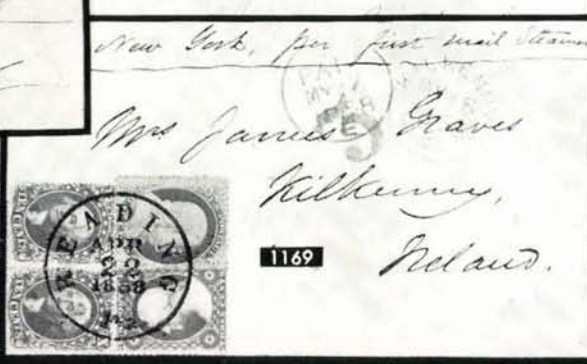 New York, per first mail Steamer
PAID
Mrs James Graves
Kilkenny,
Ireland.
READING
APR
22
1858
Pa.
1169